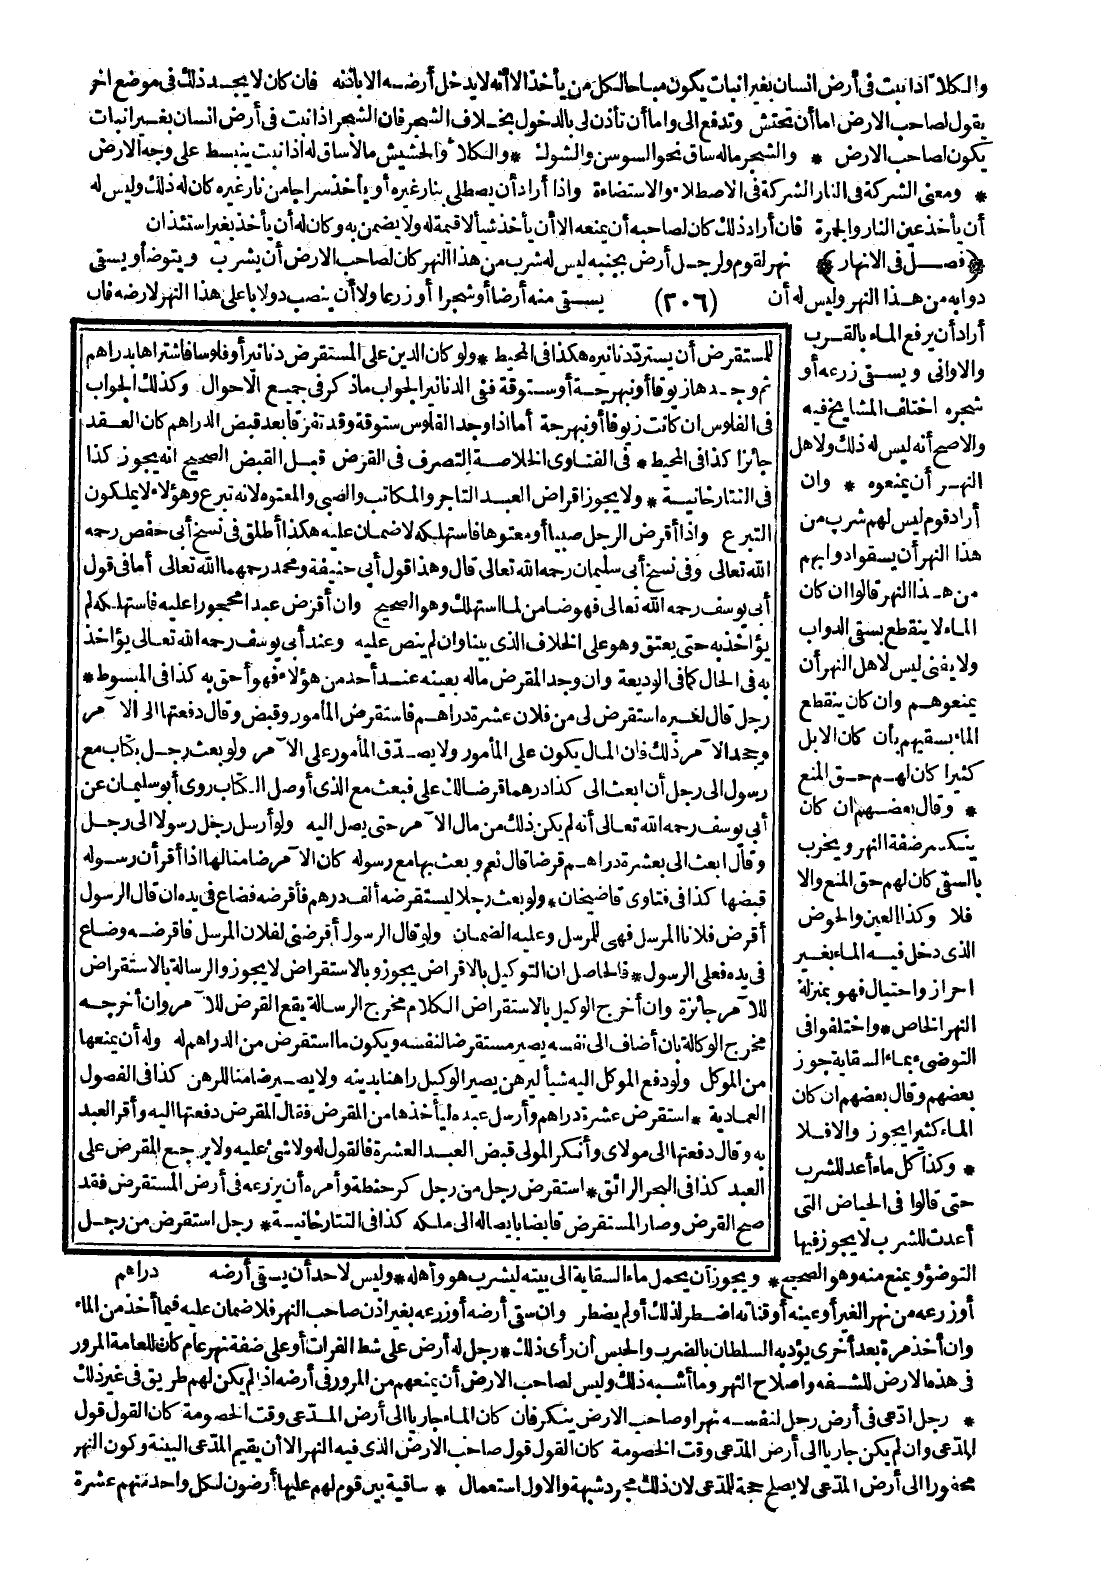 والكلأ اذا نبت فى أرض انسان بغير انبات يكون مباحا لكل من يأخذ الا أنه لا يدخل أرضه الا باذنه فان كان لا يجد ذلك فى موضع اخر
يقول لصاحب الارض اما أن تحتش وتدفع الى واما أن تأذن لى بالدخول بخلاف الشجر فان الشجر اذا نبت فى أرض انسان بغير انبات
يكون لصاحب الارض * والشجر ماله ساق نحو السوسن والشوك * والكلأ والحشيش مالا ساق له اذا نبت ينبسط على وجه الارض
* ومعنى الشركة فى النار الشركة فى الاصطلاء والاستضاءة واذا أراد أن يصطلى بنار غيره أو يأخذ سراجا من نار غيره كان له ذلك وليس له
أن يأخذ عين النار والجمرة فان أراد ذلك كان لصاحبه أن يمنعه الا أن يأخذ شيأ لا قيمة له ولا يضمن به وكان له أن يأخذ بغير استئذان
﴿فصل فى الانهار﴾ نهر لقوم ولرجل أرض بجنبه ليس له شرب من هذا النهر كان لصاحب الارض أن يشرب ويتوضأ ويسقى
دوابه من هذا النهر وليس له أن (٢٠٦) يسقى منه أرضا أو شجرا أو زرعا ولا أن ينصب دولابا على هذا النهر لارضه فان
أراد أن يرفع الماء بالقرب
والاوانى ويسقى زرعه أو
شجره اختلف المشايخ فيه
والاصح أنه ليس له ذلك ولاهل
النهر أن يمنعوه * وان
أراد قوم ليس لهم شرب من
هذا النهر أن يسقوا دوابهم
من هذا النهر قالوا ان كان
الماء لا ينقطع بسقى الدواب
ولا يفنى ليس لاهل النهر أن
يمنعوهم وان كان ينقطع
الماء بسقيهم بأن كان الابل
كثيرا كان لهم حق المنع
* وقال بعضهم ان كان
ينكسر ضفة النهر ويخرب
بالسقى كان لهم حق المنع والا
فلا وكذا العين والحوض
الذى دخل فيه الماء بغير
احراز واحتيال فهو بمنزلة
النهر الخاص * واختلفوا فى
التوضئ بماء السقاية جوز
بعضهم وقال بعضهم ان كان
الماء كثيرا يجوز والا فلا
* وكذا كل ماء أعد للشرب
حتى قالوا فى الحياض التى
أعدت للشرب لا يجوز فيها
للمستقرض أن يسترد دنانيره هكذا فى المحيط * ولو كان الدين على المستقرض دنانير أو فلوسا فاشتراها بدراهم
ثم وجدها زيوفا أو نبهرجة أو ستوقة ففى الدنانير الجواب ما ذكر فى جميع الاحوال وكذلك الجواب
فى الفلوس ان كانت زيوفا أو نبهرجة أما اذا وجد الفلوس ستوقة وقد تفرقا بعد قبض الدراهم كان العقد
جائزا كذا فى المحيط * فى الفتاوى الخلاصة التصرف فى القرض قبل القبض الصحيح انه يجوز كذا
فى التتارخانية * ولا يجوز اقراض العبد التاجر والمكاتب والصبى والمعتوه لانه تبرع وهؤلاء لا يملكون
التبرع واذا أقرض الرجل صبيا أو معتوها فاستهلكه لا ضمان عليه هكذا أطلق فى نسخ أبى حفص رحمه
الله تعالى وفى نسخ أبى سليمان رحمه الله تعالى قال وهذا قول أبى حنيفة ومحمد رحمهما الله تعالى أما فى قول
أبى يوسف رحمه الله تعالى فهو ضامن لما استهلك وهو الصحيح وان أقرض عبدا محجورا عليه فاستهلكه لم
يؤاخذ به حتى يعتق وهو على الخلاف الذى بينا وان لم ينص عليه وعند أبى يوسف رحمه الله تعالى يؤاخذ
به فى الحال كما فى الوديعة وان وجد المقرض ماله بعينه عند أحد من هؤلاء فهو أحق به كذا فى المبسوط *
رجل قال لغيره استقرض لى من فلان عشرة دراهم فاستقرض المأمور وقبض وقال دفعتها الى الآمر
وجحد الآمر ذلك فان المال يكون على المأمور ولا يصدق المأمور على الآمر ولو بعث رجل بكتاب مع
رسول الى رجل أن ابعث الى كذا درهما قرضا لك على فبعث مع الذى أوصل الكتاب روى أبو سليمان عن
أبى يوسف رحمه الله تعالى أنه لم يكن ذلك من مال الآمر حتى يصل اليه ولو أرسل رجل رسولا الى رجل
وقال ابعث الى بعشرة دراهم قرضا قال نعم وبعث بها مع رسوله كان الآمر ضامنا لها اذا أقر أن رسوله
قبضها كذا فى فتاوى قاضيخان * ولو بعث رجلا ليستقرضه ألف درهم فأقرضه فضاع فى يده ان قال الرسول
أقرض فلانا المرسل فهى للمرسل وعليه الضمان ولو قال الرسول أقرضنى لفلان المرسل فاقرضه وضاع
فى يده فعلى الرسول * فالحاصل ان التوكيل بالاقراض يجوز وبالاستقراض لا يجوز والرسالة بالاستقراض
للآمر جائزة وان أخرج الوكيل بالاستقراض الكلام مخرج الرسالة يقع القرض للآمر وان أخرجه
مخرج الوكالة بان أضاف الى نفسه يصير مستقرضا لنفسه ويكون ما استقرض من الدراهم له وله أن يمنعها
من الموكل ولو دفع الموكل اليه شيأ ليرهن يصير الوكيل راهنا بدينه ولا يصير ضامنا للرهن كذا فى الفصول
العمادية * استقرض عشرة دراهم وأرسل عبده ليأخذها من المقرض فقال المقرض دفعتها اليه وأقر العبد
به وقال دفعتها الى مولاى وأنكر المولى قبض العبد العشرة فالقول له ولا شئ عليه ولا يرجع المقرض على
العبد كذا فى البحر الرائق * استقرض رجل من رجل كر حنطة وأمره أن يزرعه فى أرض المستقرض فقد
صح القرض وصار المستقرض قابضا بايصاله الى ملكه كذا فى التتارخانية * رجل استقرض من رجل
دراهم
التوضؤ ويمنع منه وهو الصحيح * ويجوز أن يحمل ماء السقاية الى بيته ليشرب هو وأهله * وليس لاحد أن يسقى أرضه
أو زرعه من نهر الغير أو عينه أو قناته اضطر لذلك أو لم يضطر وان سقى أرضه أو زرعه بغير اذن صاحب النهر فلا ضمان عليه فيما أخذ من الماء
وان أخذ مرة بعد أخرى يؤدبه السلطان بالضرب والحبس ان رأى ذلك * رجل له أرض على شط الفرات أو على ضفة نهر عام كان للعامة المرور
فى هذه الارض للشفه واصلاح النهر وما أشبه ذلك وليس لصاحب الارض أن يمنعهم من المرور فى أرضه اذا لم يكن لهم طريق فى غير ذلك
* رجل ادعى فى أرض رجل لنفسه نهرا وصاحب الارض ينكر فان كان الماء جاريا الى أرض المدعى وقت الخصومة كان القول قول
المدعى وان لم يكن جاريا الى أرض المدعى وقت الخصومة كان القول قول صاحب الارض الذى فيه النهر الا أن يقيم المدعى البينة وكون النهر
محفورا الى أرض المدعى لا يصلح حجة للمدعى لان ذلك مجرد شبهة والاول استعمال * ساقية بين قوم لهم عليها أرضون لكل واحد منهم عشرة